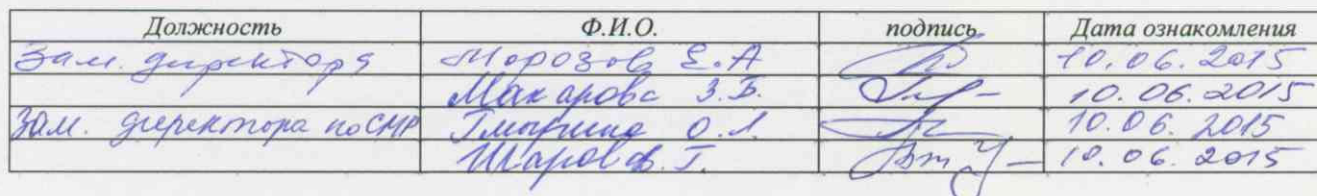 Должность Ф.И.О. подпись Дата ознакомления
Зам. директора Морозов Е.А 10.06.2015
Макарова З.Б. 10.06.2015
Зам. директора по СМР О.Л. 10.06.2015
Шаров В.Г. 10.06.2015